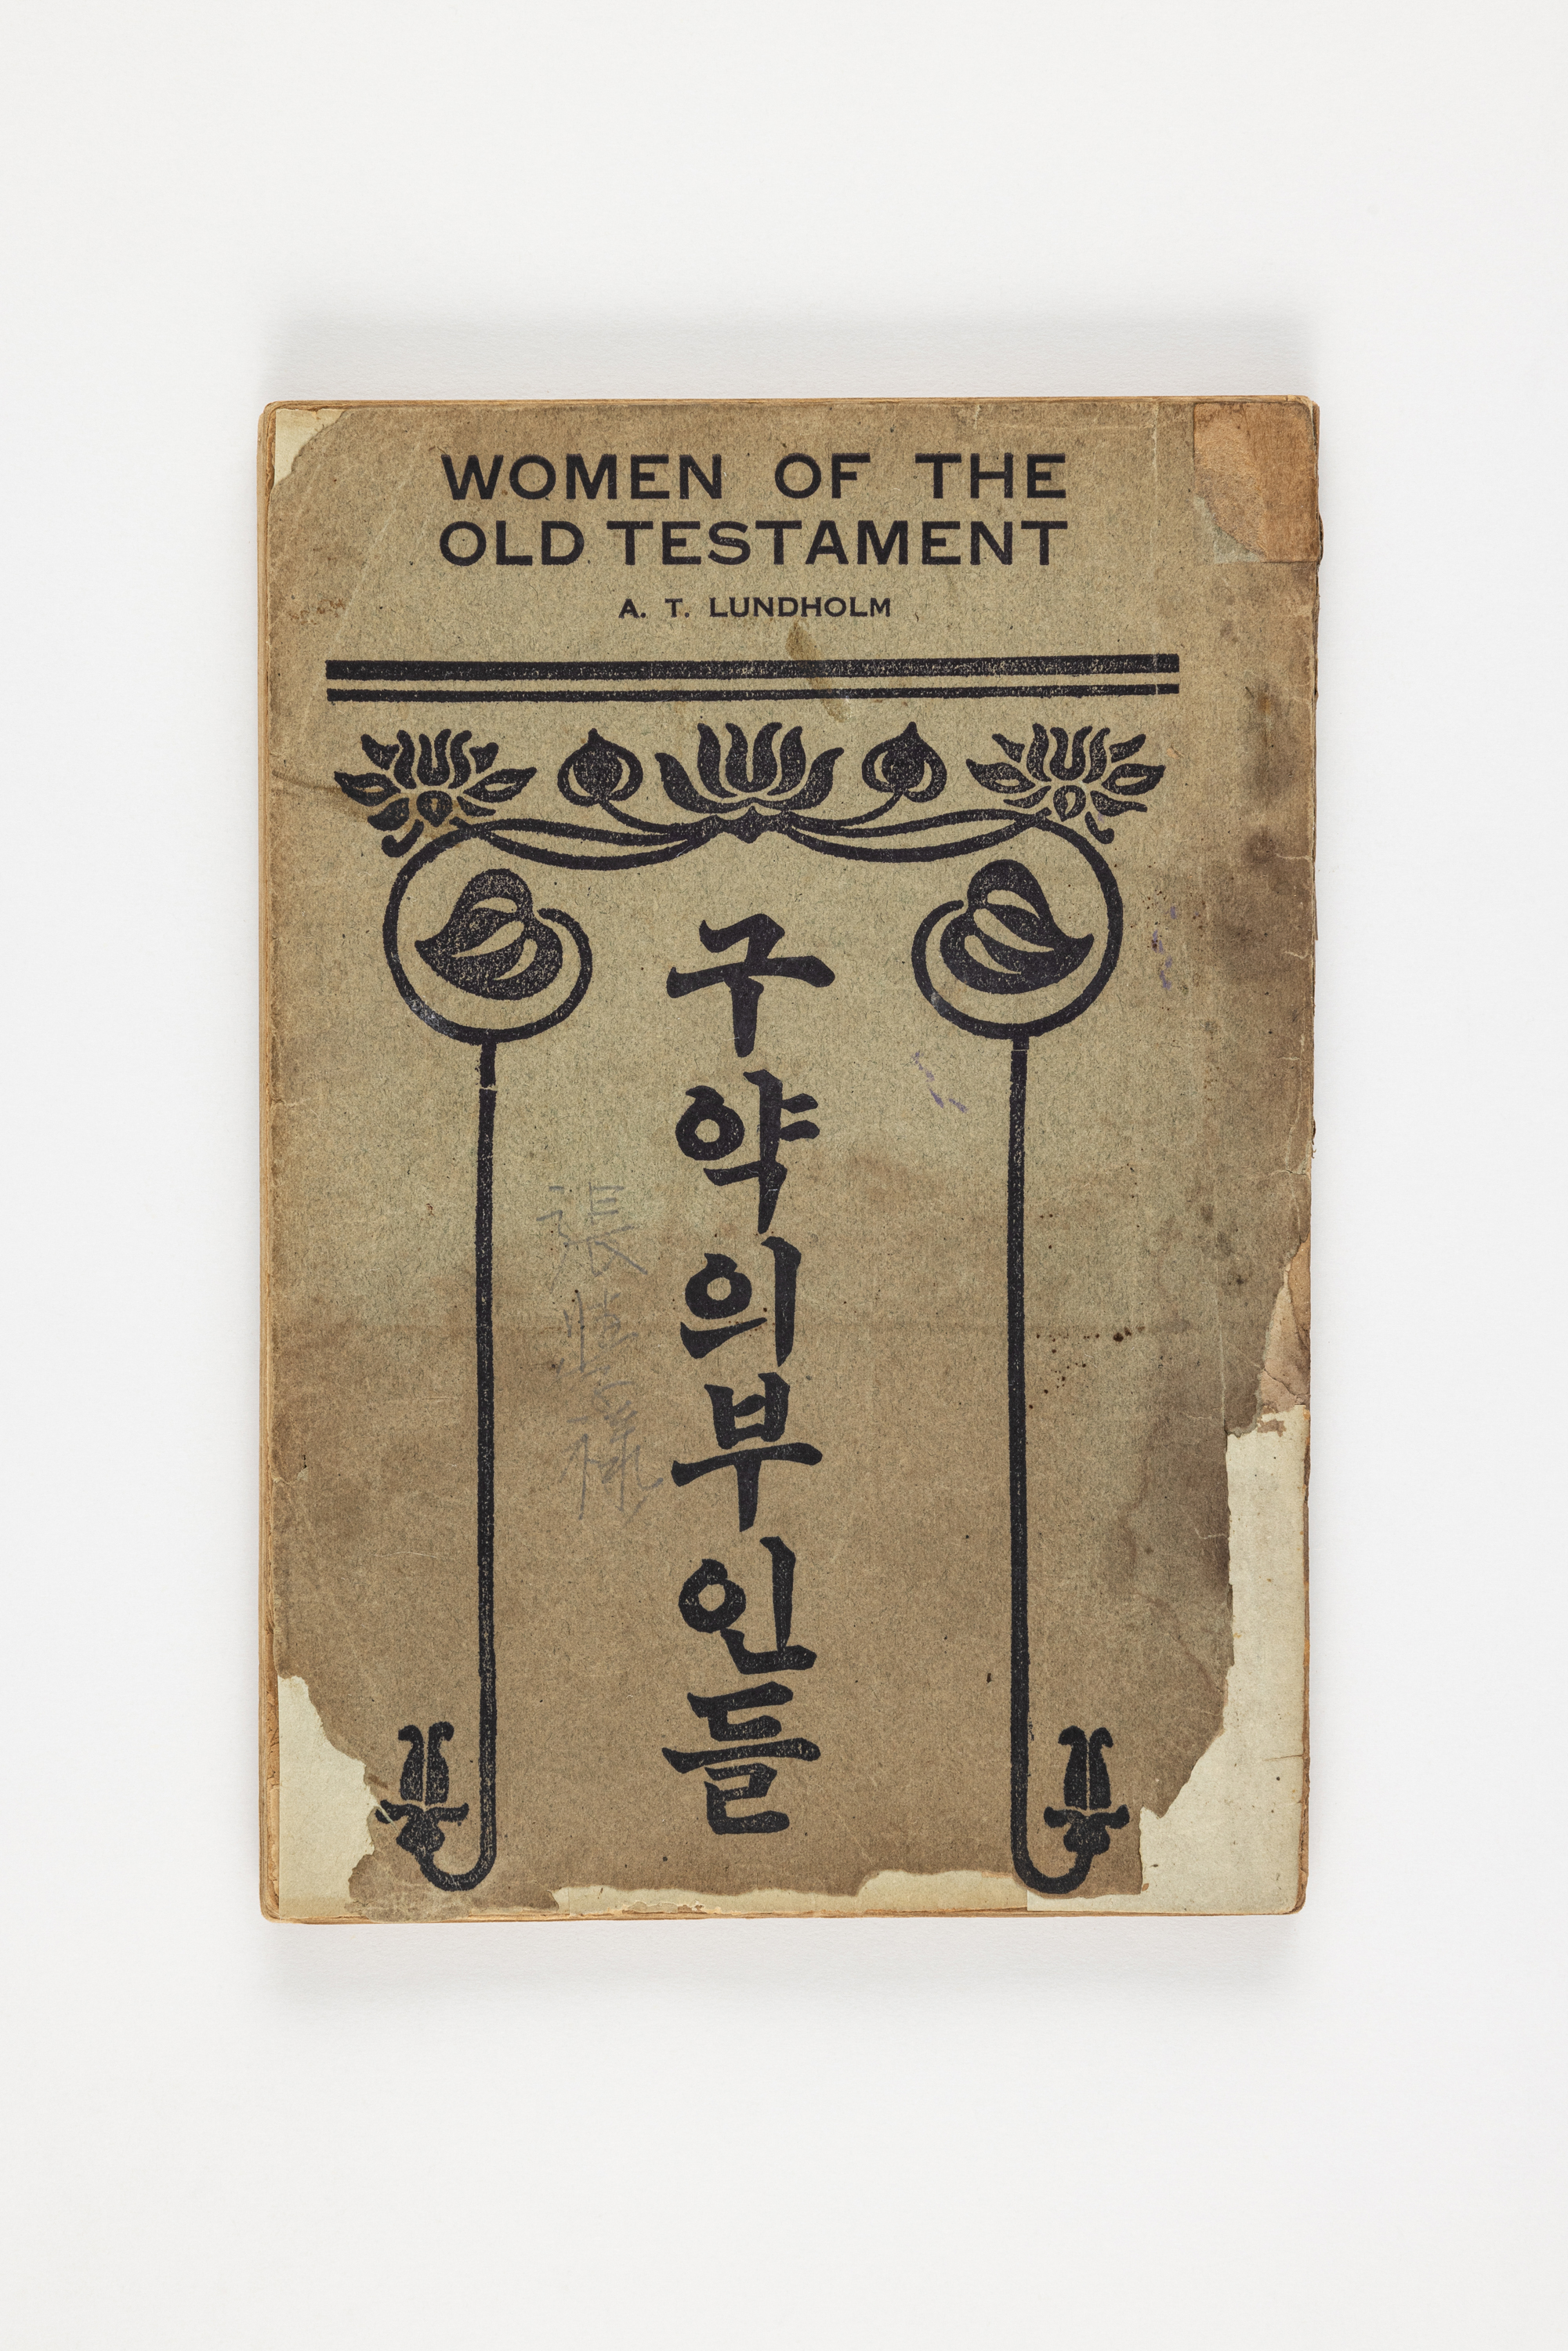 WOMEN OF THE
OLD TESTAMENT
A. T. LUNDHOLM
구약의부인들
張